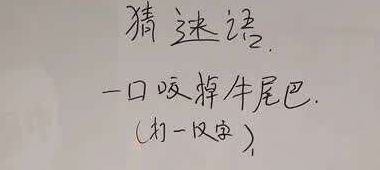 猜迷语.
一口咬掉牛尾巴.
(打一汉字)